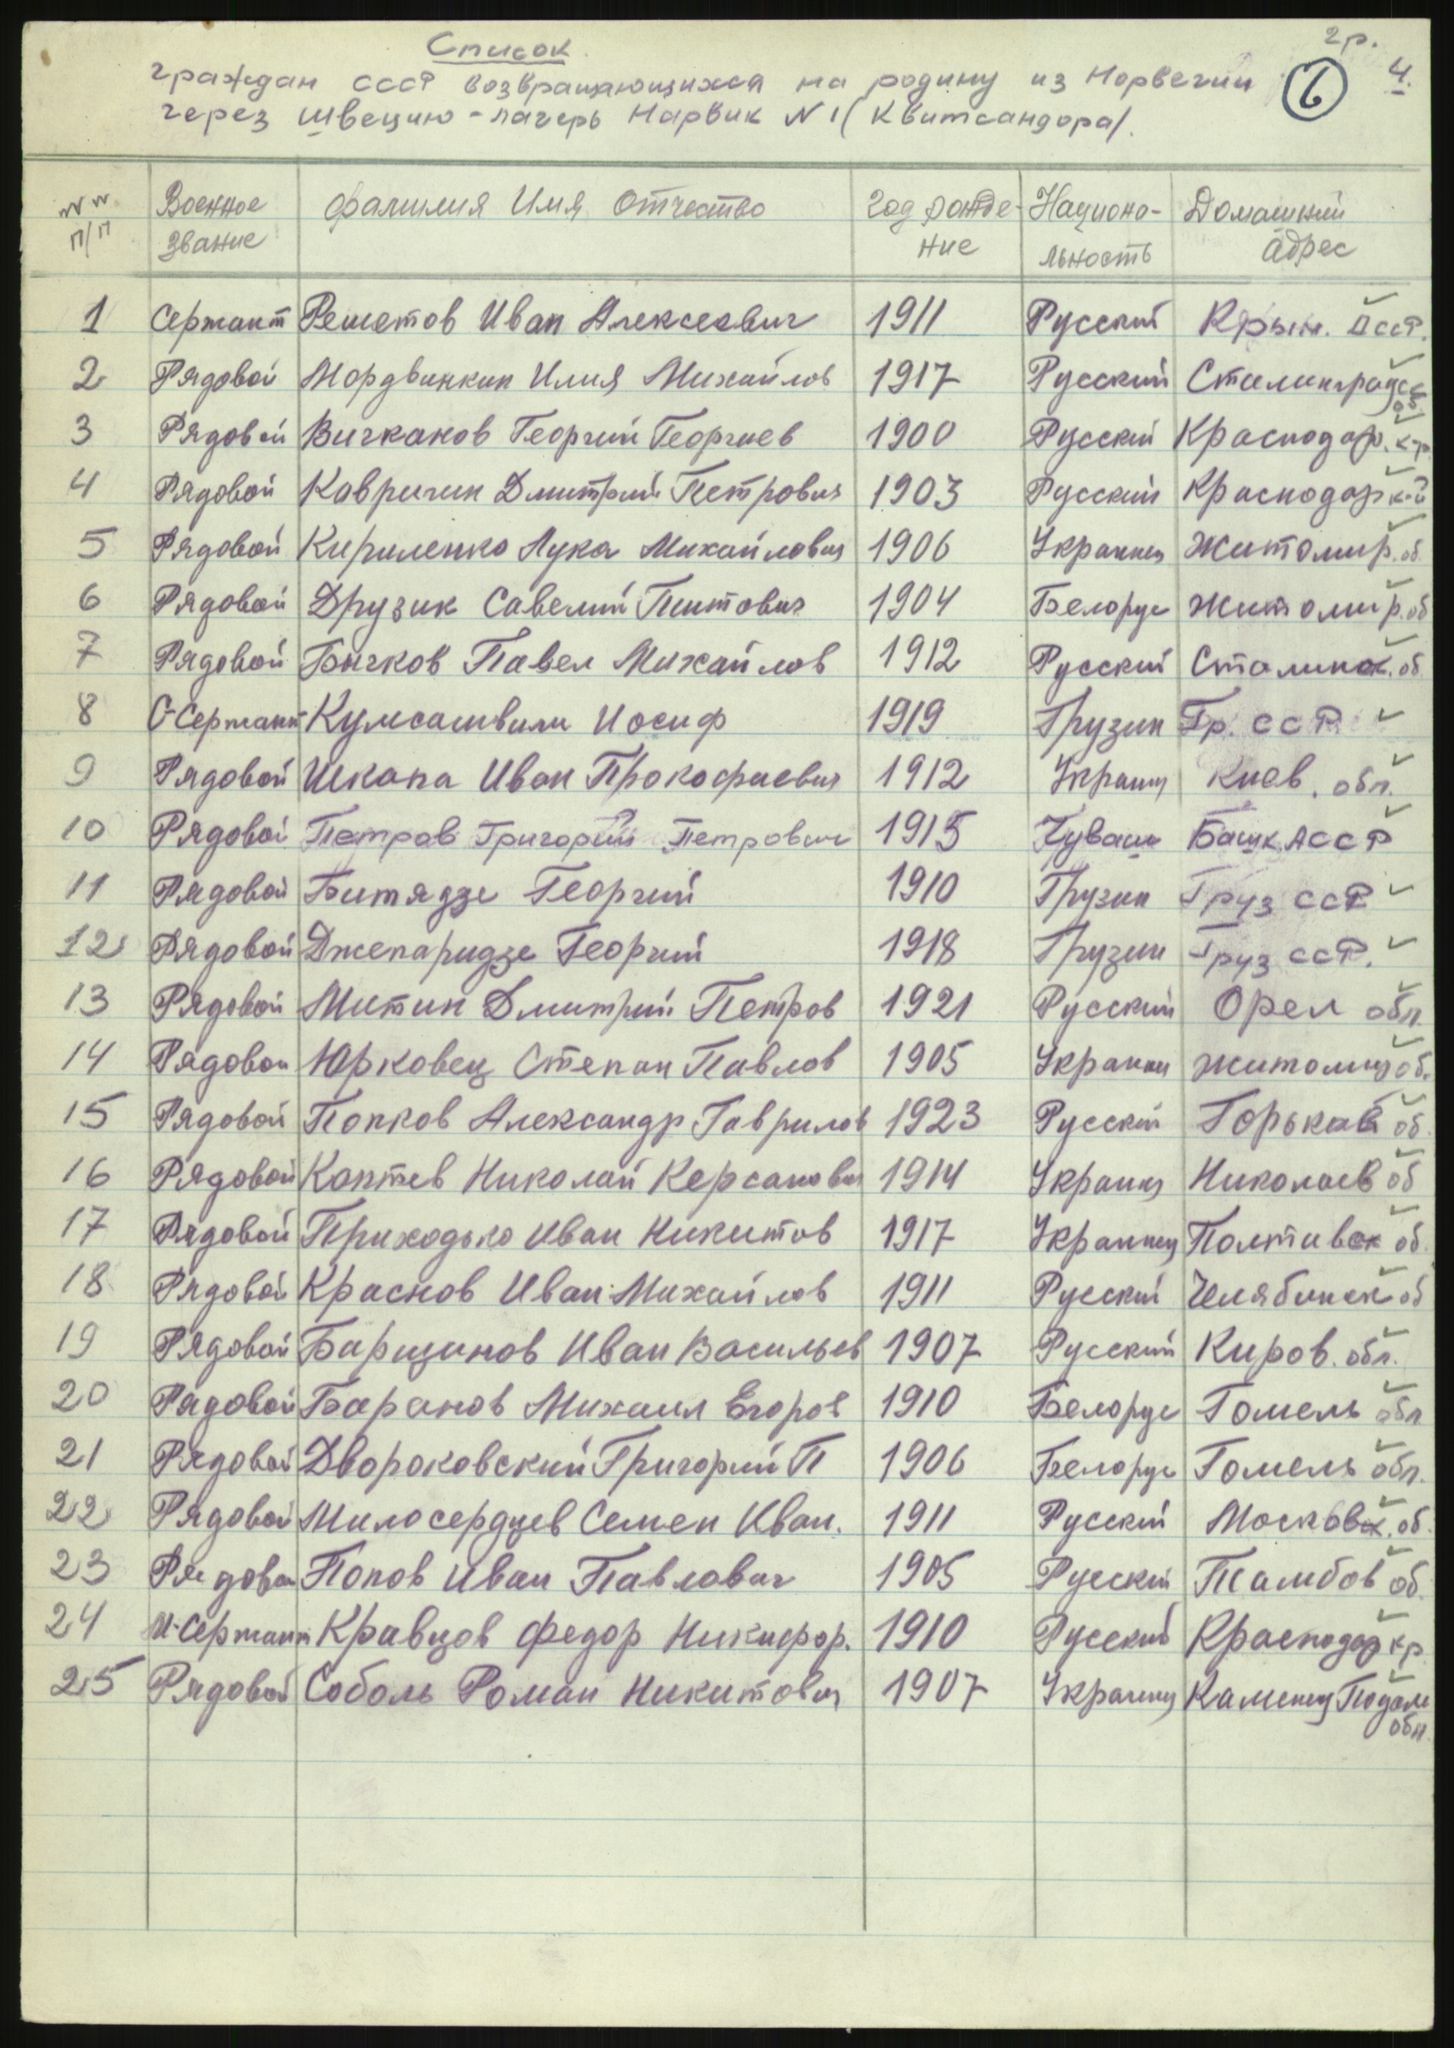 2р.
4.
6
Список
граждан СССР возвращающихся на родину из Норвегии
через Швецию - лагерь Нарвик N 1 (Квитсандора/.
NN п/п Военное звание Фамилия Имя Отчество Год рожде-ние Национа-льность Домашний адрес
1 Сержант Решетов Иван Алексеевич 1911 Русский Крым. АССР.
2 Рядовой Мордвинкин Илия Михайлов 1917 Русский Сталинградск об
3 Рядовой Вичканов Георгий Георгиев 1900 Русский Краснодар. к-р.
4 Рядовой Кавричин Дмитрий Петрович 1903 Русский Краснодар к-й
5 Рядовой Кириленко Лука Михайлович 1906 Украинец Житомир. об.
6 Рядовой Друзик Савелий Титович 1904 Белорус Житомир. об
7 Рядовой Бычков Павел Михайлов 1912 Русский Сталинск. об
8 С-Сержант Кумсашвили Иосиф 1919 Грузин Гр. ССР
9 Рядовой Шкапа Иван Прокофиевич 1912 Украинц Киев. обл.
10 Рядовой Петров Григорий Петрович 1915 Чуваш Башк. АССР
11 Рядовой Битядзе Георгий 1910 Грузин Груз ССР
12 Рядовой Джепаридзе Георгий 1918 Грузин Груз ССР.
13 Рядовой Митин Дмитрий Петров 1921 Русский Орел обл.
14 Рядовой Юрковец Степан Павлов 1905 Украинец Житомир об.
15 Рядовой Попков Александр Гаврилов 1923 Русский Горьков об.
16 Рядовой Коптев Николай Керсанович 1914 Украинц Николаев об
17 Рядовой Приходько Иван Никитов 1917 Украинец Полтавск об.
18 Рядовой Краснов Иван Михайлов 1911 Русский Челябинск об
19 Рядовой Барщинов Иван Васильев 1907 Русский Киров. обл.
20 Рядовой Баранов Михаил Егоров 1910 Белорус Гомель обл
21 Рядовой Двораковский Григорий П 1906 Белорус Гомель обл.
22 Рядовой Милосердцев Семен Иван. 1911 Русский Московск. об.
23 Рядовой Попов Иван Павлович 1905 Русский Тамбов об.
24 М-Сержант Кравцов Федор Никифор. 1910 Русский Краснодар кр.
25 Рядовой Соболь Роман Никитович 1907 Украинец Каменец Подол обл.